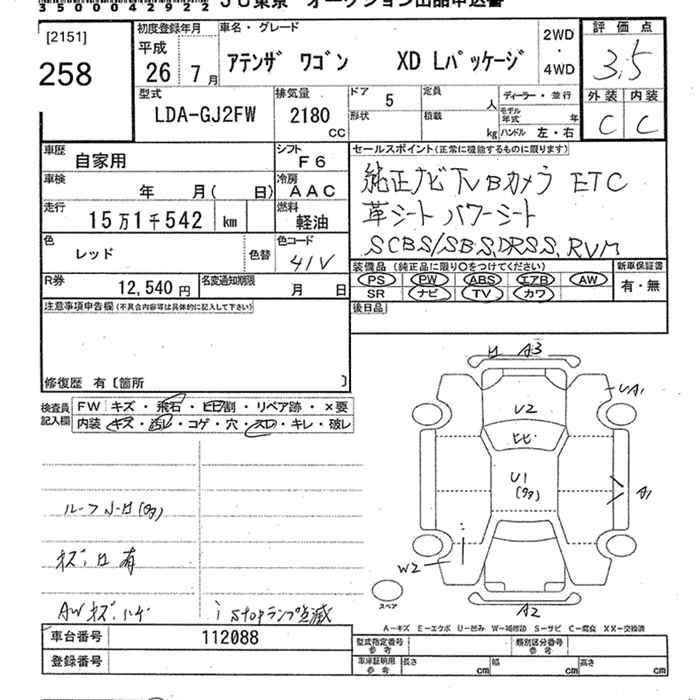 35000042922 JU東京 オークション出品申込書
[2151]
258
初度登録年月
平成
26 7月
車名・グレード
アテンザ ワゴン XD Lパッケージ
2WD
・
4WD
評価点
3.5
外装 内装
C C
型式
LDA-GJ2FW
排気量
2180
CC
ドア 5
形状
定員 人
積載 kg
ディーラー・並行
モデル年式 年
ハンドル 左・右
車歴
自家用
シフト
F6
車検
年 月( 日)
冷房
AAC
走行
15万1千542 km
燃料
軽油
色
レッド
色替
色コード
41V
R券
12,540円
名変通知期限
月 日
セールスポイント(正常に機能するものに限ります)
純正ナビTVBカメラ ETC
革シート パワーシート
SCBS/SBS,DRSS,RVM
装備品 (純正品に限り○をつけてください)
PS PW ABS エアB AW
SR ナビ TV カワ
新車保証書
有・無
後日品
注意事項申告欄(不具合内容等は具体的に記入して下さい)
修復歴 有〔箇所 〕
検査員記入欄
FW キズ・飛石・ヒビ割・リペア跡・×要
内装 キズ・汚レ・コゲ・穴・スレ・キレ・破レ
A3
U2
UA1
ヒビ
U1
(多)
A1
W2
A2
スペア
ルーフ小凹(多)
キズ.凹有
AWキズ.ハゲ
i stopランプ点滅
A-キズ E-エクボ U-凹み W-補修跡 S-サビ C-腐食 XX-交換済
車台番号 112088
登録番号
型式指定番号
参考
類別区分番号
参考
車庫証明用
参考
長さ cm
幅 cm
高さ cm